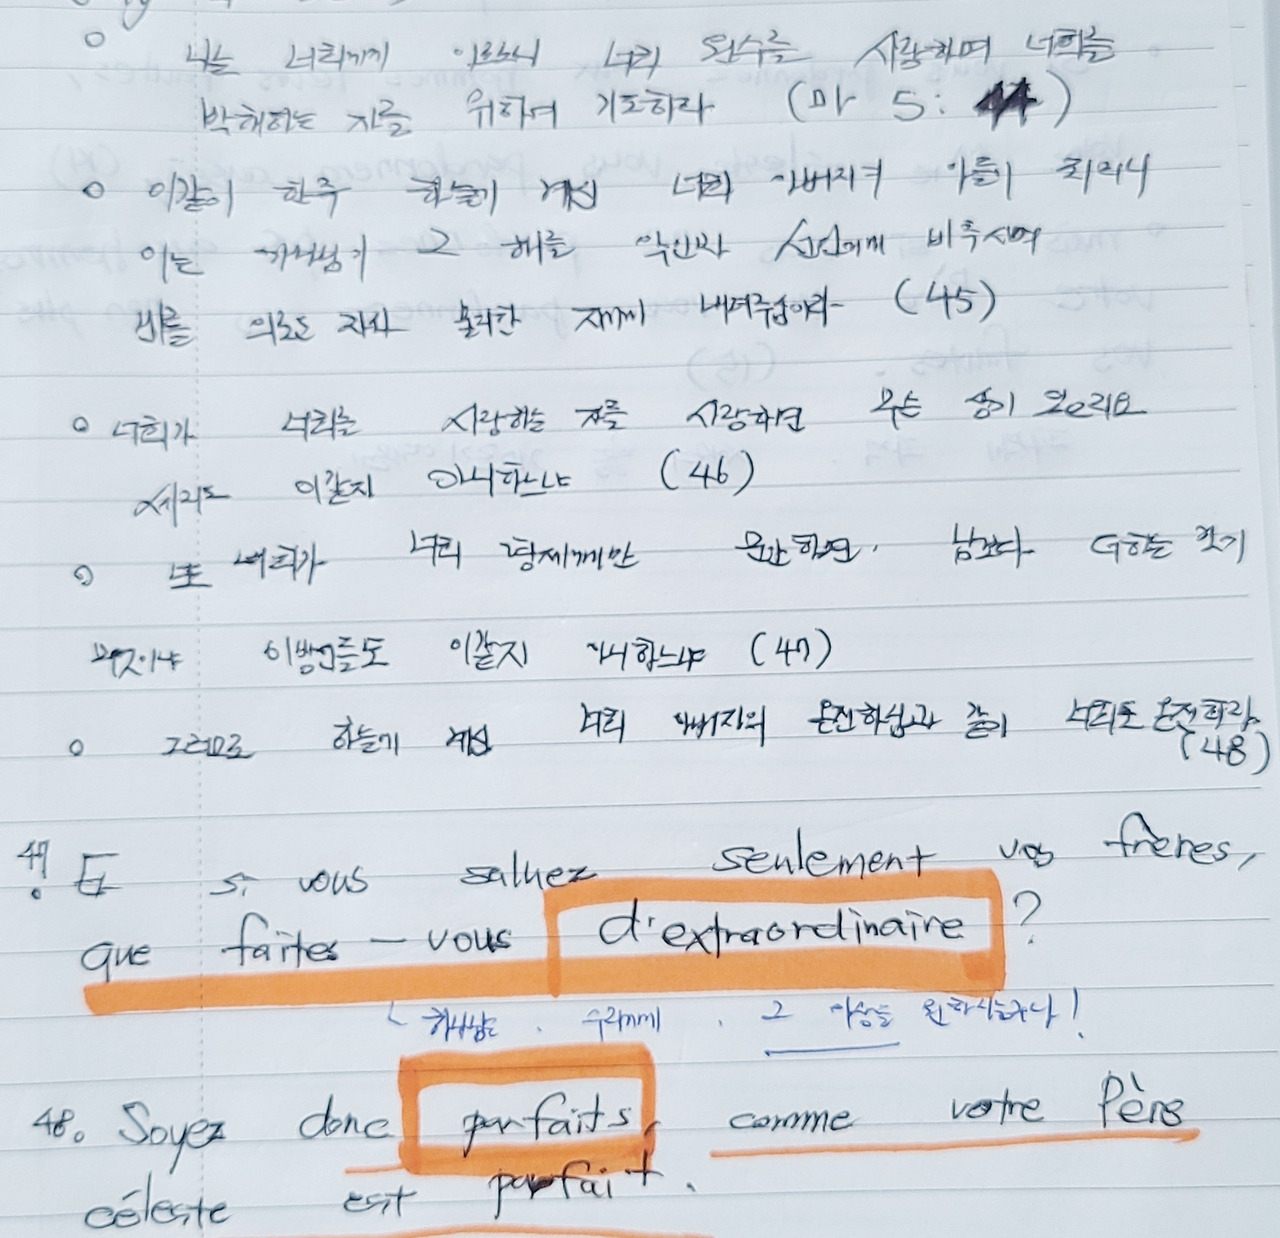 나는 너희에게 이르노니 너희 원수를 사랑하며 너희를
박해하는 자를 위하여 기도하라 (마 5: 44)
이같이 한즉 하늘에 계신 너희 아버지의 아들이 되리니
이는 하나님이 그 해를 악인과 선인에게 비추시며
비를 의로운 자와 불의한 자에게 내려주심이라 (45)
너희가 너희를 사랑하는 자를 사랑하면 무슨 상이 있으리요
세리도 이같이 아니하느냐 (46)
또 너희가 너희 형제에게만 문안하면. 남보다 더하는 것이
무엇이냐 이방인들도 이같이 아니하느냐 (47)
그러므로 하늘에 계신 너희 아버지의 온전하심과 같이 너희도 온전하라
(48)
47. Et si vous saluez seulement vos frères,
que faites-vous d'extraordinaire ?
하나님은. 우리에게. 그 이상을 원하시는구나!
48. Soyez donc parfaits, comme votre Père
céleste est parfait.